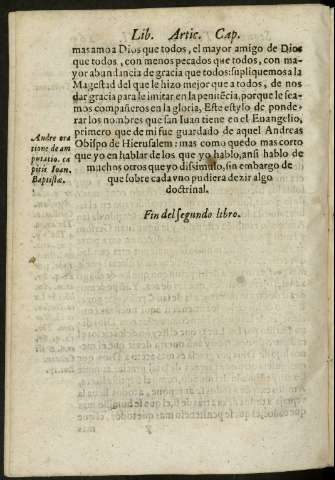 Lib. Artic. Cap.
mas amo a Dios que todos, el mayor amigo de Dios
que todos, con menos pecados que todos, con ma-
yor abundancia de gracia que todos: supliquemos a la
Magestad del que le hizo mejor que a todos, de nos
dar gracia para le imitar en la penitẽcia, porque le sea-
mos compañeros en la gloria. Este estylo de ponde-
rar los nombres que san Iuan tiene en el Euangelio,
primero que de mi fue guardado de aquel Andreas
Obispo de Hierusalem: mas como quedo mas corto
que yo en hablar de los que yo hablo, ansi hablo de
muchos otros que yo dissimulo, sin embargo de
que sobre cada vno pudiera dezir algo
doctrinal.
Andre ora
tione de am
putatio. ca
pitis Ioan.
Baptistæ.
Fin del segundo libro.